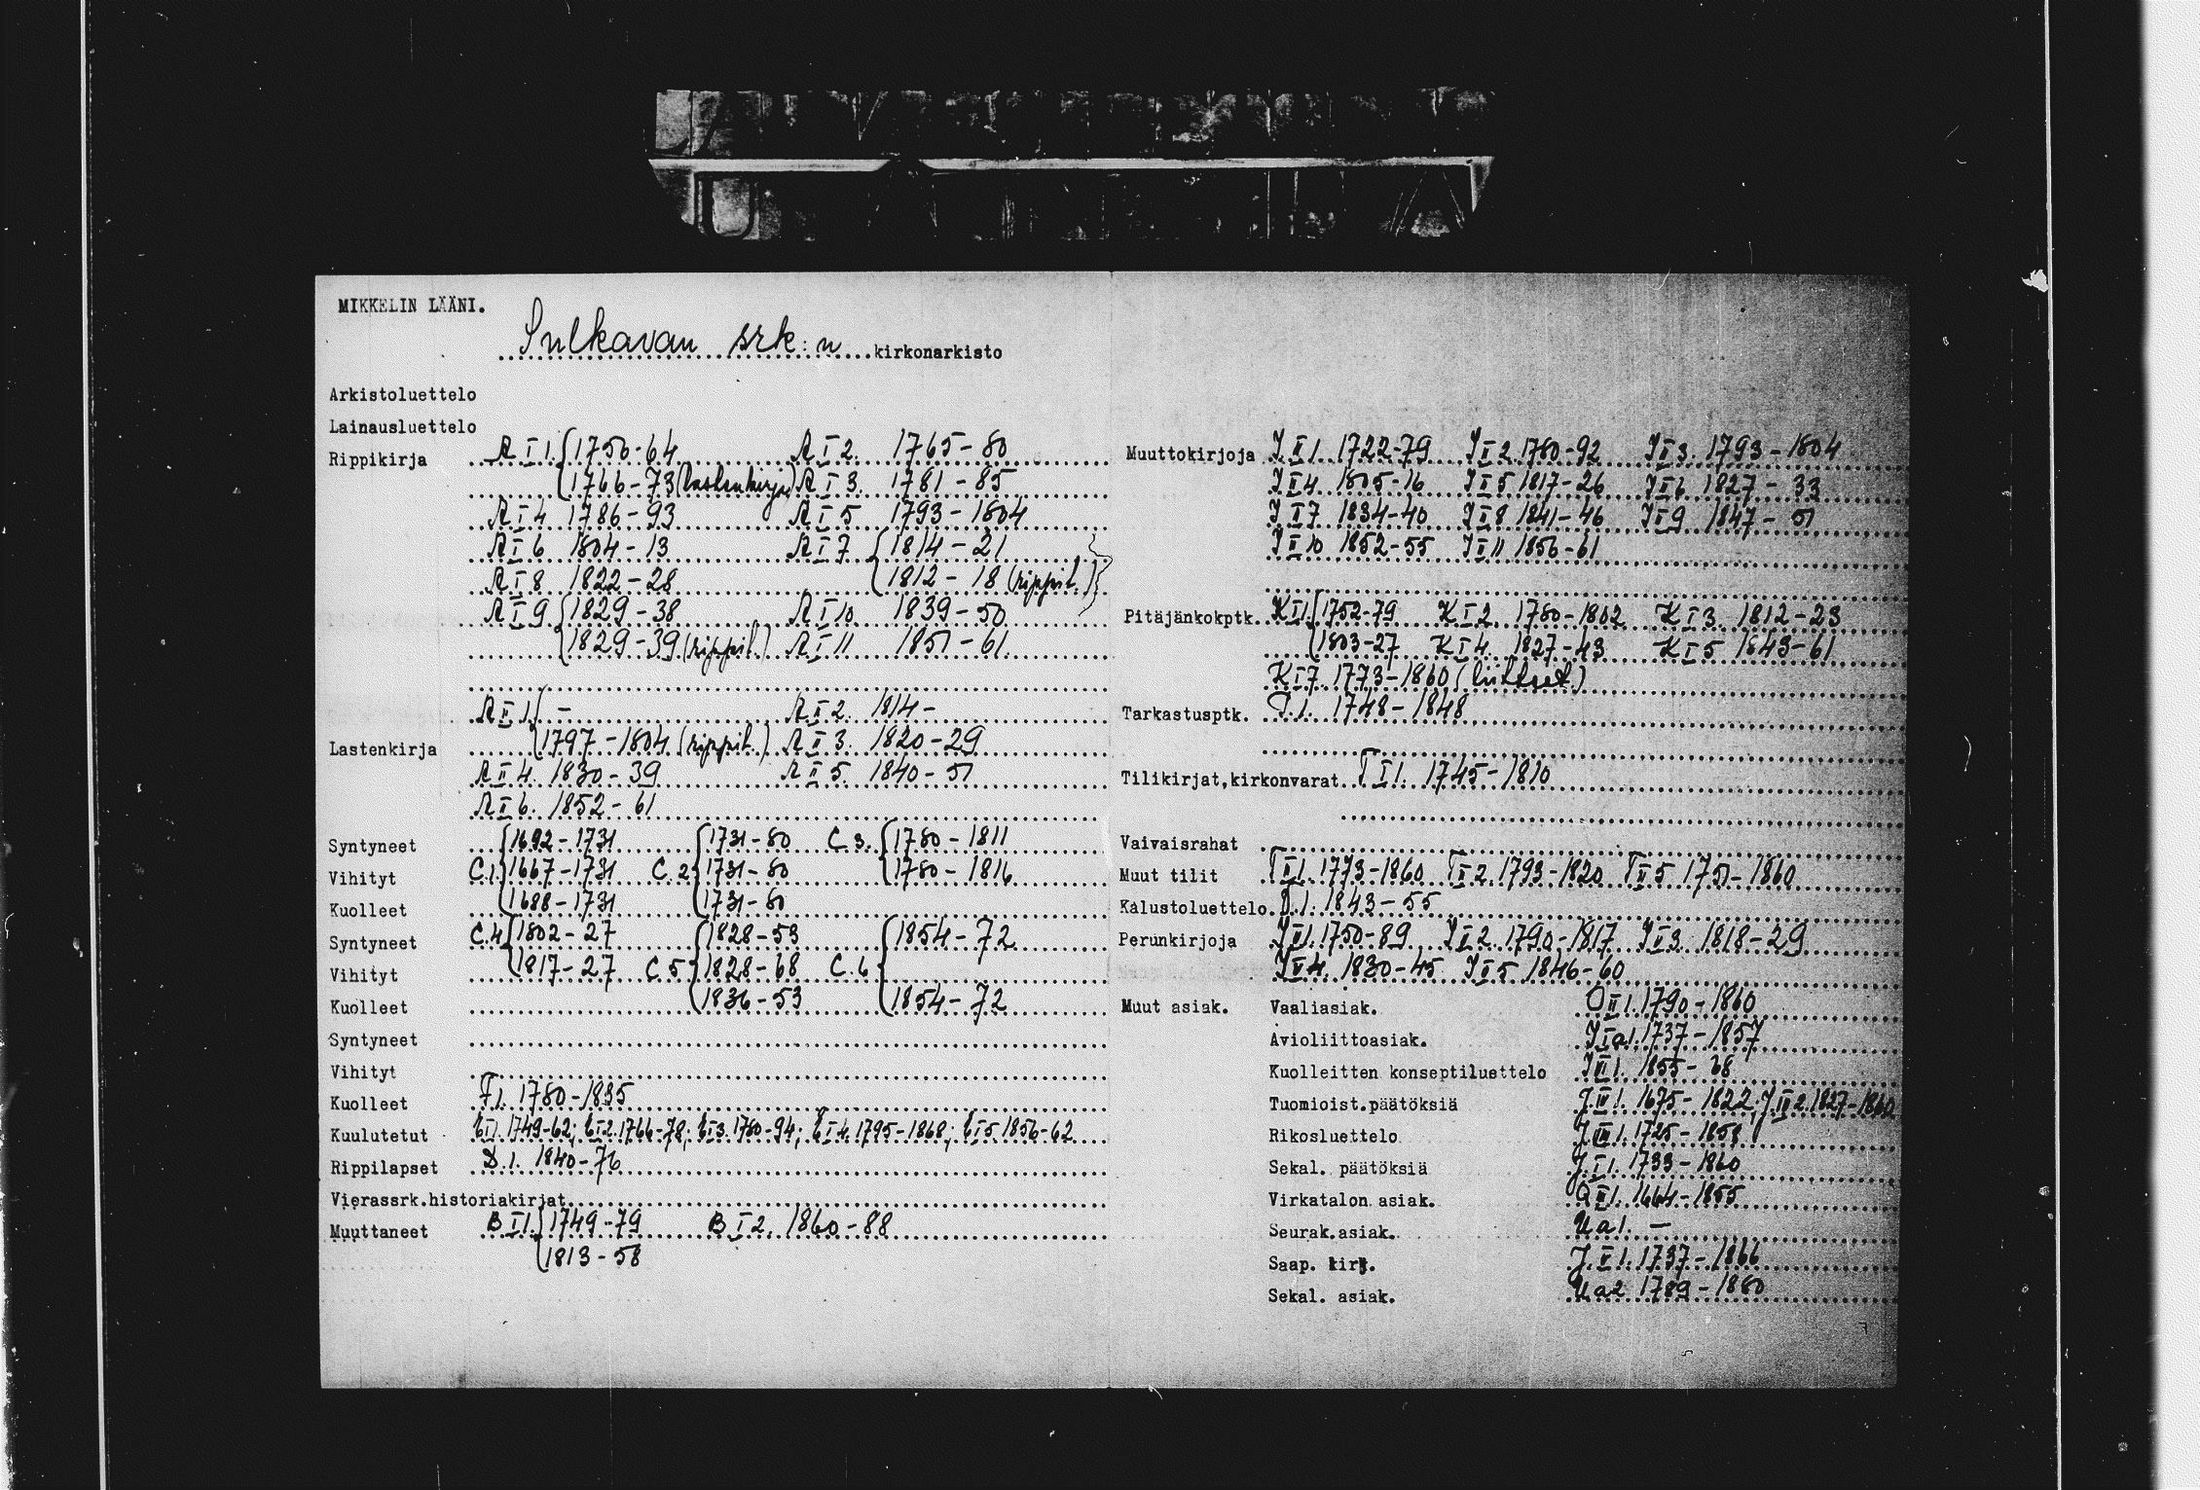 MIKKELIN LÄÄNI.
Sulkavan srk:n kirkonarkisto
Arkistoluettelo
Lainausluettelo
Rippikirja A I 1. {1750-64 A I 2. 1765-80
{1766-73 (lastenkirja) A I 3. 1781-85
A I 4 1786-93 A I 5 1793-1804
A I 6 1804-13 A I 7 {1814-21
A I 8 1822-28 {1812-18 (rippil.)}
A I 9 {1829-38 A I 10. 1839-50
{1829-39 (rippil.) A I 11 1851-61
A II 1. {- A II 2. 1814-
Lastenkirja {1797-1804 (rippil.) A II 3. 1820-29
A II 4. 1830-39 A II 5. 1840-51
A II 6. 1852-61
Syntyneet {1692-1731 {1731-80 C. 3. {1780-1811
Vihityt C.1. {1667-1731 C. 2 {1731-80 {1780-1816
Kuolleet {1688-1731 {1731-80
Syntyneet C.4 {1802-27 {1828-53 {1854-72
Vihityt {1817-27 C 5 {1828-68 C. 6 {
Kuolleet {1836-53 {1854-72
Syntyneet
Vihityt
Kuolleet F1. 1780-1835
Kuulutetut E I 1. 1749-62; E I 2. 1766-78; E I 3. 1780-94; E I 4. 1795-1868; E I 5 1856-62
Rippilapset D.1. 1840-76
Vierassrk.historiakirjat
Muuttaneet B I 1. {1749-79 B I 2. 1860-88
{1813-58
Muuttokirjoja I II 1. 1722-79 I II 2. 1780-92 I II 3. 1793-1804
I II 4. 1805-16 I II 5 1817-26 I II 6 1827-33
I II 7 1834-40 I II 8 1841-46 I II 9 1847-51
I II 10 1852-55 I II 11 1856-61
Pitäjänkokptk. K I 1. {1752-79 K I 2. 1780-1802 K I 3. 1812-23
{1803-27 K I 4. 1827-43 K I 5 1843-61
K I 7. 1773-1860 (liitteet)
Tarkastusptk. P.1. 1748-1848
Tilikirjat,kirkonvarat T I 1. 1745-1810
Vaivaisrahat
Muut tilit T II 1. 1773-1860 T II 2. 1793-1820 T II 5 1751-1860
Kalustoluettelo. 1843-55
Perunkirjoja 1750-89 1790-1817 1818-29
1830-45 1846-60
Muut asiak. Vaaliasiak. O II 1. 1790-1860
Avioliittoasiak. I I a1. 1737-1857
Kuolleitten konseptiluettelo 1855-68
Tuomioist.päätöksiä 1675-1822, 1827-1860
Rikosluettelo J III 1. 1725-1858
Sekal. päätöksiä J I 1. 1733-1860
Virkatalon asiak. O II 1. 1664-1855
Seurak.asiak. U a 1. —
Saap. kirj. J. V 1. 1737-1866
Sekal. asiak. U a 2 1789-1880